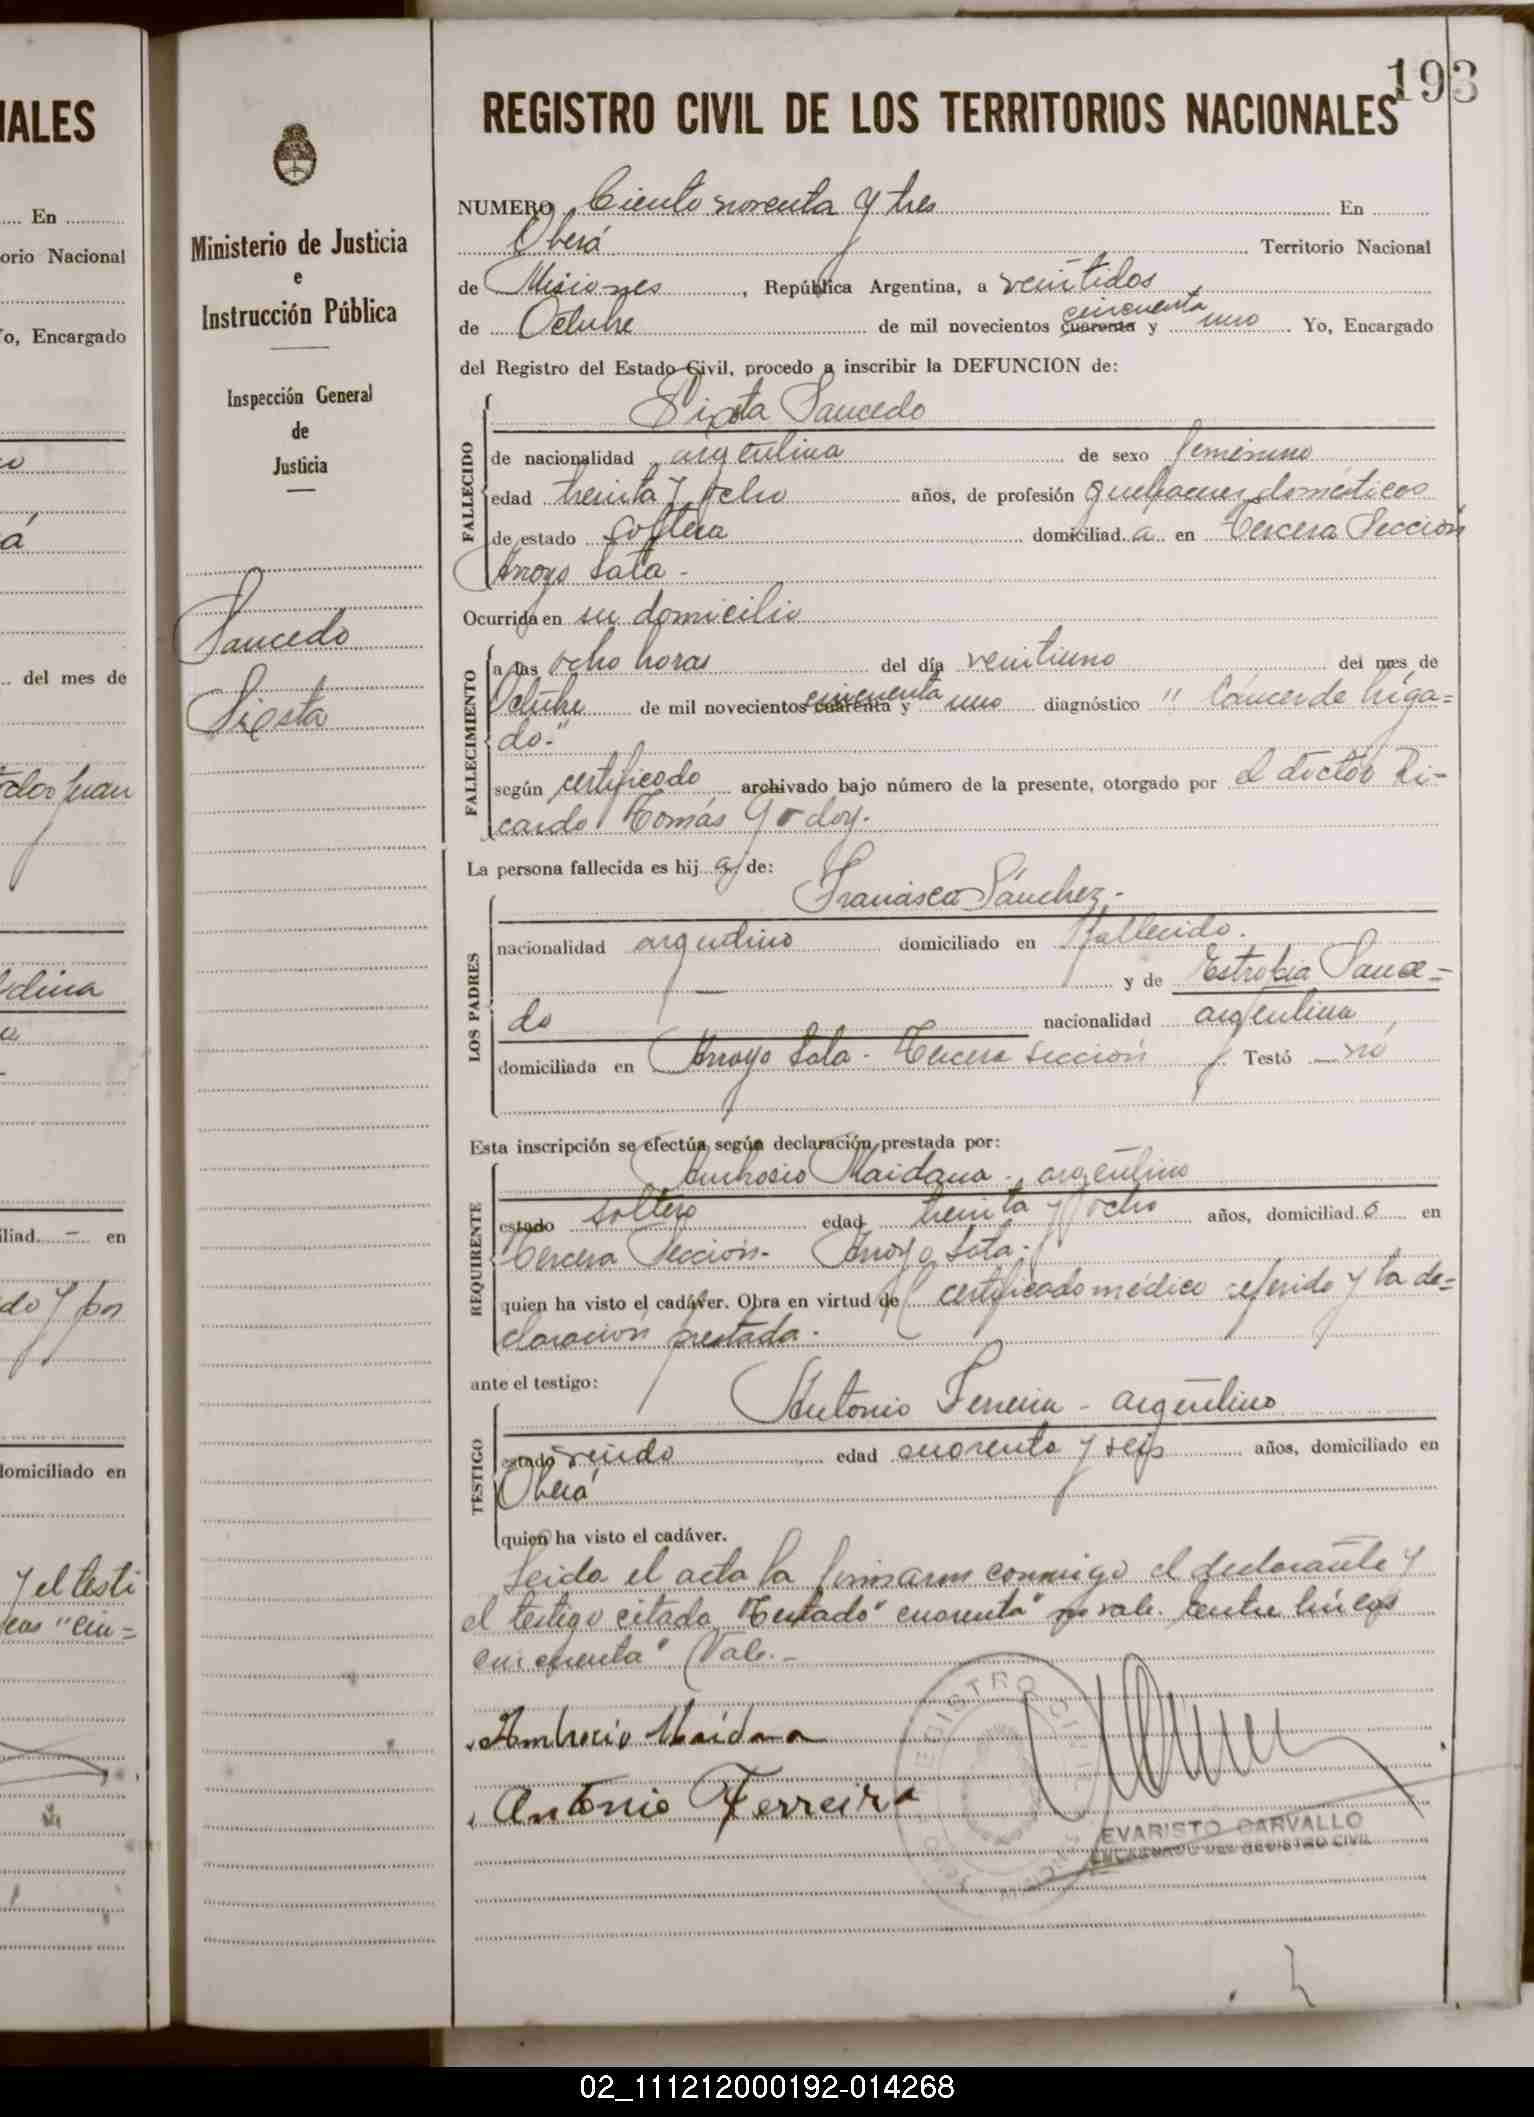 193
REGISTRO CIVIL DE LOS TERRITORIOS NACIONALES
NUMERO Ciento noventa y tres En
Oberá Territorio Nacional
de Misiones, República Argentina, a veintidos
cincuenta
de Octubre de mil novecientos cuarenta y uno Yo, Encargado
del Registro del Estado Civil, procedo a inscribir la DEFUNCION de:
Sixta Saucedo
FALLECIDO
de nacionalidad argentina de sexo femenino
edad treinta y ocho años, de profesión quehaceres domésticos
de estado soltera domiciliad a en Tercera Sección
Arroyo Tata -
Ocurrida en su domicilio
FALLECIMIENTO
a las ocho horas del día veintiuno del mes de
cincuenta
Octubre de mil novecientos cuarenta y uno diagnóstico " Cáncer de híga=
do."
según certificado archivado bajo número de la presente, otorgado por el doctor Ri-
cardo Tomás Godoy.
La persona fallecida es hij a de:
LOS PADRES
Francisco Sánchez -
nacionalidad argentino domiciliado en fallecido.
— y de Sauce=
do nacionalidad argentina
domiciliada en Arroyo Tata - Tercera Sección Testó — nó
Esta inscripción se efectúa según declaración prestada por:
REQUIRENTE
Ambrosio Maidana - argentino
estado soltero edad treinta y ocho años, domiciliad o en
Tercera Sección - Arroyo Tata -
quien ha visto el cadáver. Obra en virtud del certificado médico referido y la de=
claración prestada.
ante el testigo:
TESTIGO
Antonio Ferreira - argentino
estado viudo edad cuarenta y seis años, domiciliado en
Oberá
quien ha visto el cadáver.
Leida el acta la firmaron conmigo el declarante y
el testigo citado. Testado "cuarenta" no vale. Entre líneas
cincuenta" Vale.-
Ambrosio Maidana
Antonio Ferreira
REGISTRO CIVIL
EVARISTO CARVALLO
ENCARGADO DEL REGISTRO CIVIL
Ministerio de Justicia
e
Instrucción Pública
Inspección General
de
Justicia
Saucedo
Sixta
IALES
En
orio Nacional
Yo, Encargado
á
del mes de
Juan
dina
iliad. - en
do y por
domiciliado en
y el testi
eas "cin=
02_111212000192-014268